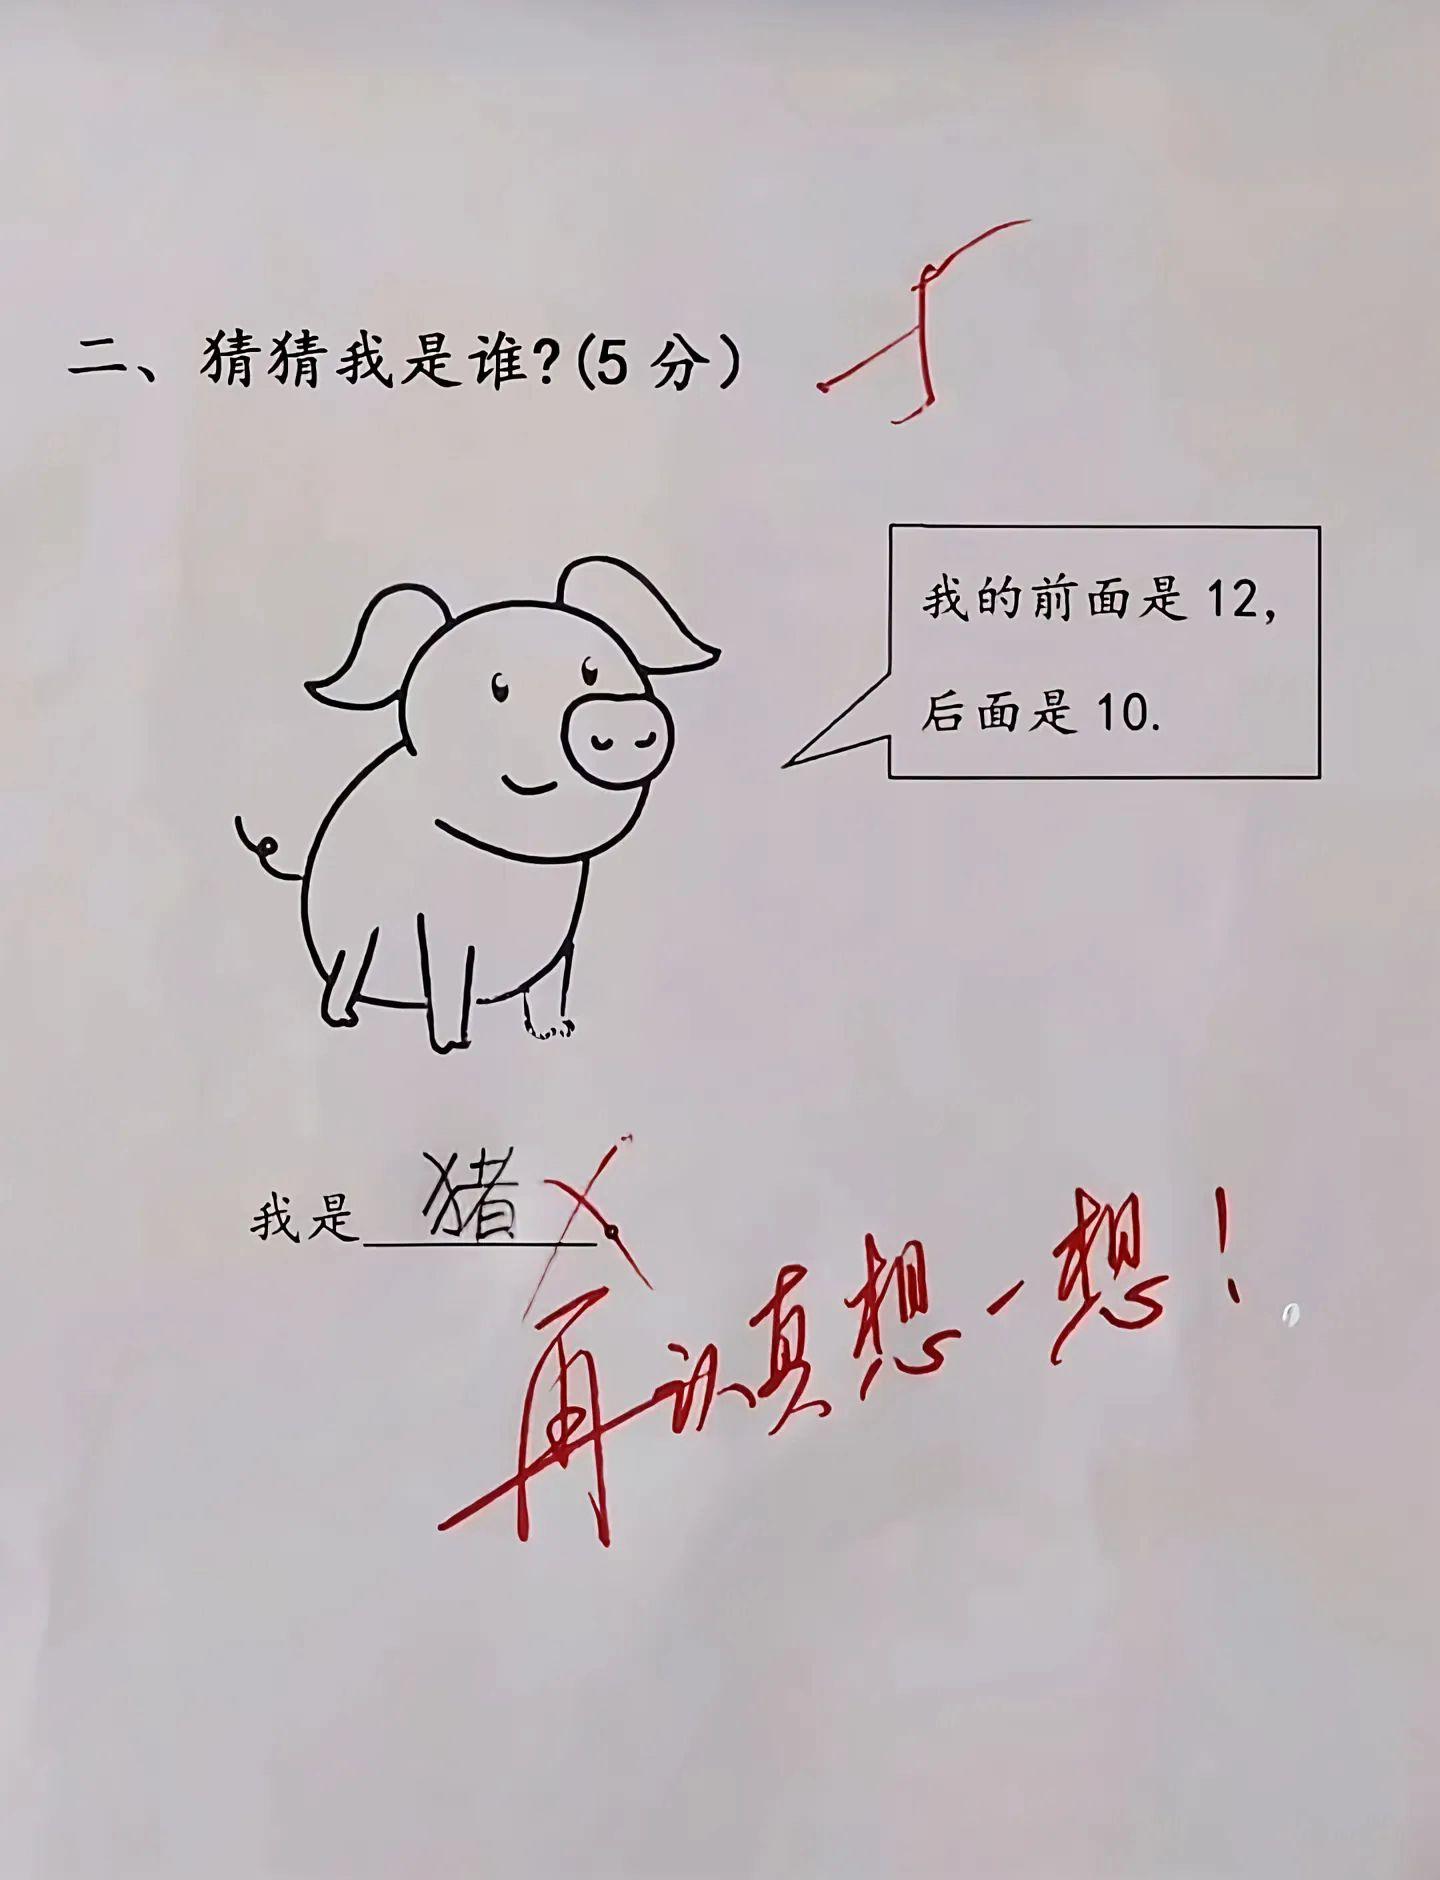 二、猜猜我是谁?(5分)
我的前面是12,
后面是10.
我是 猪
再认真想一想!